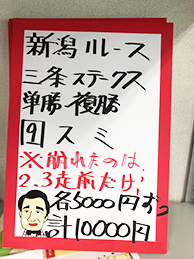 新潟11レース
三条ステークス
単勝・複勝
⑨スミ
※崩れたのは、
2.3走前だけ!
各5000円ずつ
計10000円